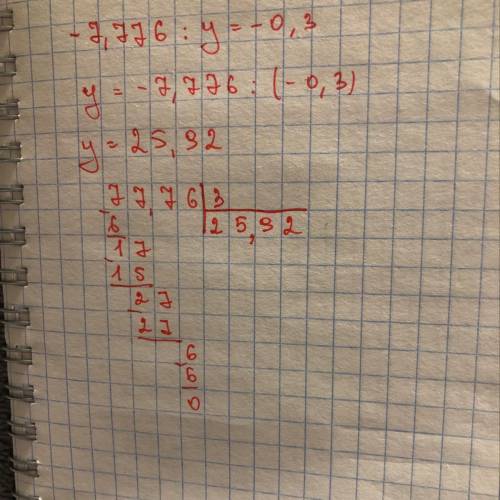 -7,776 : y = -0,3
y = -7,776 : (-0,3)
y = 25,92
77,76 | 3
6 | 25,92
17
15
27
27
6
6
0